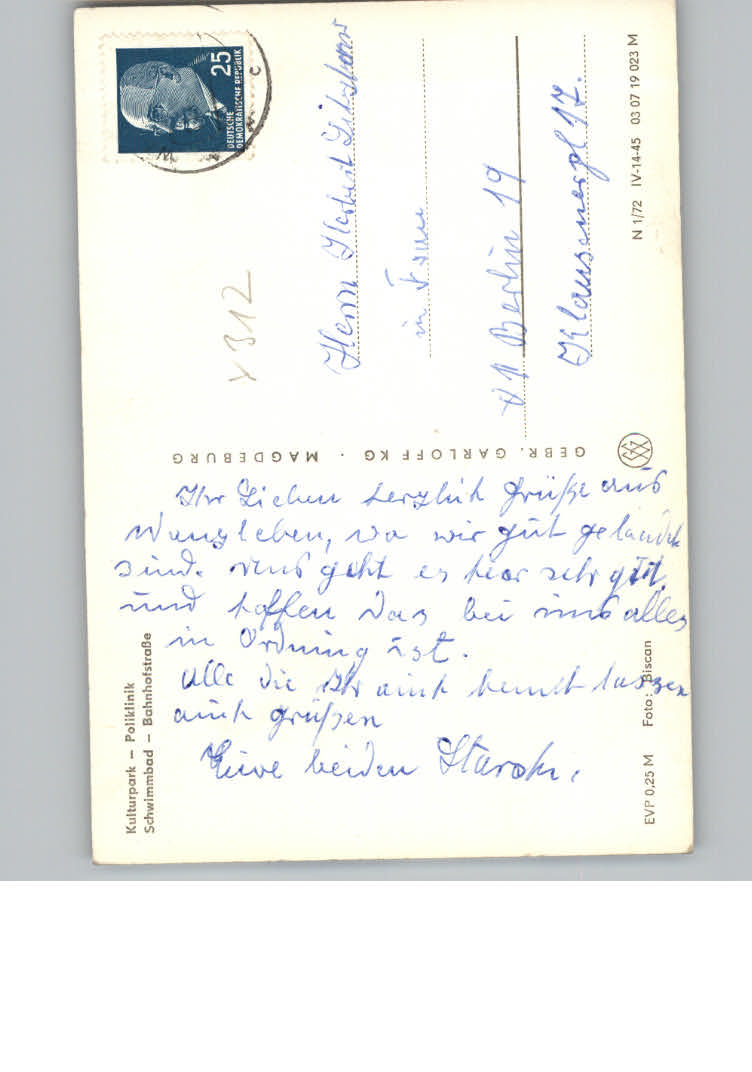 Kulturpark – Poliklinik
Schwimmbad – Bahnhofstraße
Ihr Lieben herzlich Grüße aus
Wanzleben, wo wir gut gelandet
sind. uns geht es hier sehr gut
und hoffen das bei uns alles
in Ordnung ist.
Alle die Ihr auch kennt lassen
auch grüßen
Eure beiden
EVP 0,25 M Foto: Biscan
GEBR. GARLOFF KG · MAGDEBURG
25
DEUTSCHE
DEMOKRATISCHE REPUBLIK
312
Herrn Herbert
in Frau
Berlin 19
Klausenerpl 17.
N 1/72 IV-14-45 03 07 19 023 M